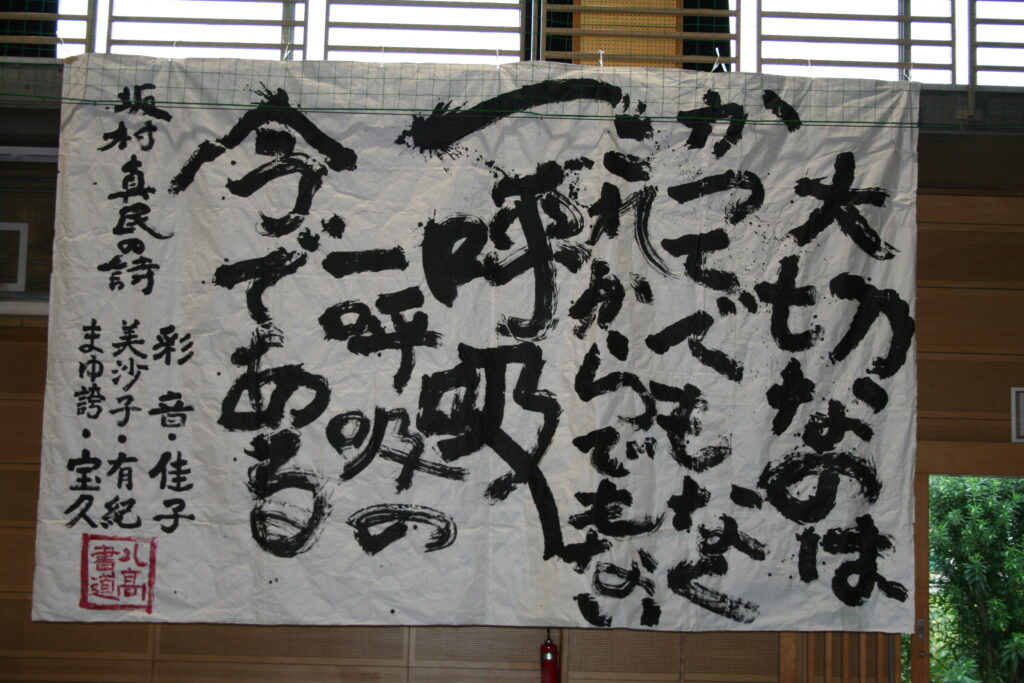 大切なのは
かつてでもなく
これからでもない
一呼吸
一呼吸の
今である
坂村真民の詩
彩音・佳子
美沙子・有紀
まゆ誇・宝久
八高
書道